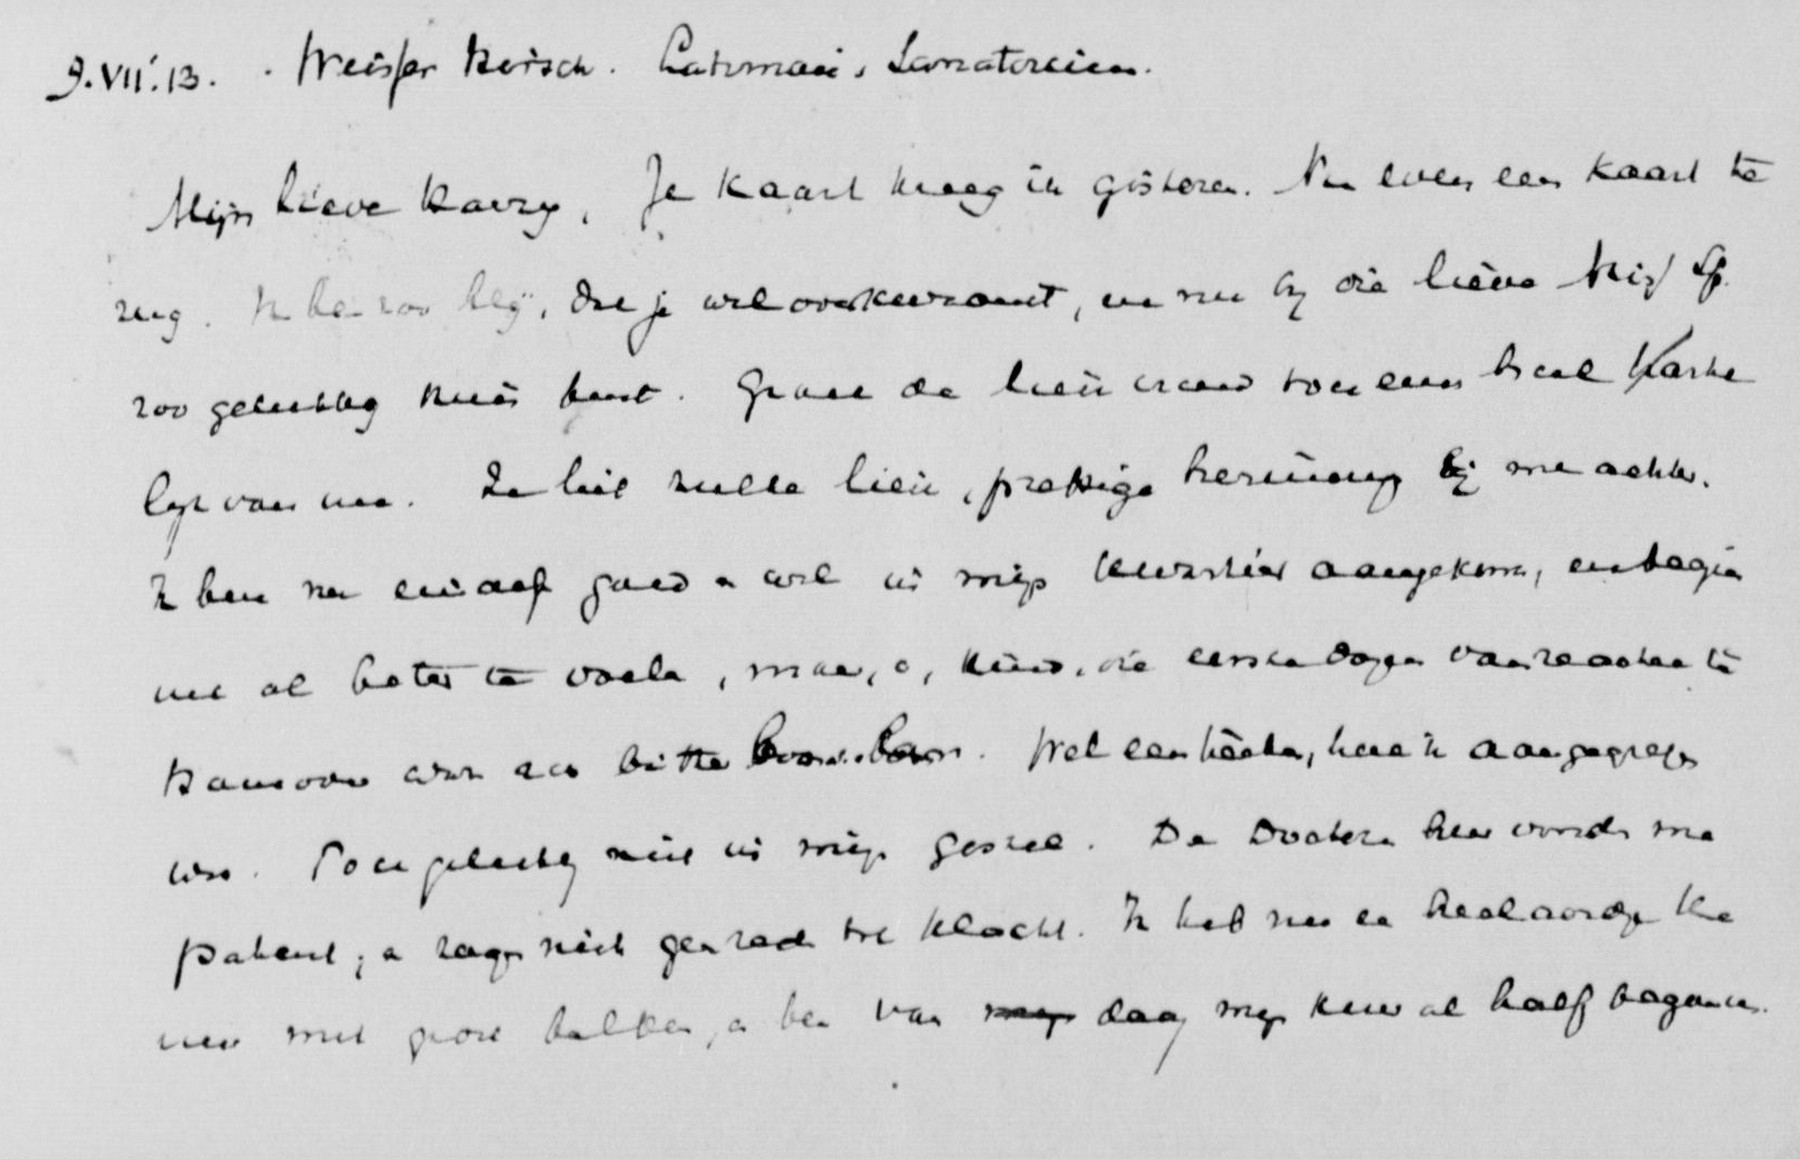 9.VII.'13. Weisser Hirsch. Lahmann's Sanatorium.
Mijn lieve Harry, Je kaart kreeg ik gisteren. Nu even een kaart te
rug. Ik ben zoo blij, dat je wel overkwaamt, en nu bij die lieve Miss Sp.
zoo gelukkig thuis bent. Groet de lieve vriend toch eens heel harte
lijk van me. Ze liet zulke lieve, prettige herinnering bij me achter.
Ik ben nu eindelijk goed en wel in mijn kwartier aangekomen, en begin
me al beter te voelen, maar, o, kind, die eerste dagen van
Hannover was een bitter. Wel een beetje, hoe ik aangegrepen
was. Toch gelukkig niet in mijn gestel. De Doctoren hier vonden me
patent, en zagen niet gen reden tot klacht. Ik heb nu een heel aardige ka
mer met groot balkon, en ben van daag mijn kuur al half begonnen.